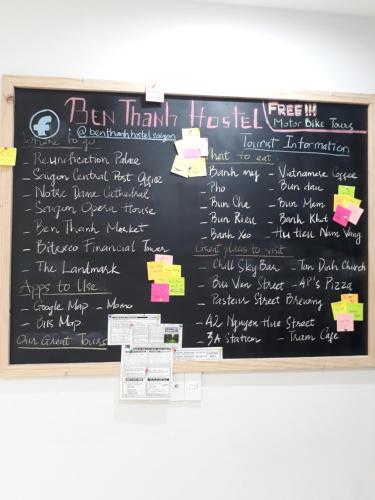 BEN THANH HOSTEL
FREE!!!
Motor Bike Tours
@benthanhhostelsaigon
Tourist Information
Where to go
- Reunification Palace
- Saigon Central Post Office
- Notre Dame Cathedral
- Saigon Opera House
- Ben Thanh Market
- Bitexco Financial Tower
- The Landmark
Apps to Use
- Google Map - Momo
- Bus Map
Our Great Tours
What to eat
- Banh my - Vietnamese Coffee
- Pho - Bun dau
- Bun Cha - Bun Mam
- Bun Rieu - Banh Khot
- Banh Xeo - Hu tieu Nam Vang
Great places to visit
- Chill Sky Bar - Tan Dinh Church
- Bui Vien Street - 4P's Pizza
- Pasteur Street Brewing
- 42 Nguyen Hue Street
- 3A Station - Tram Cafe